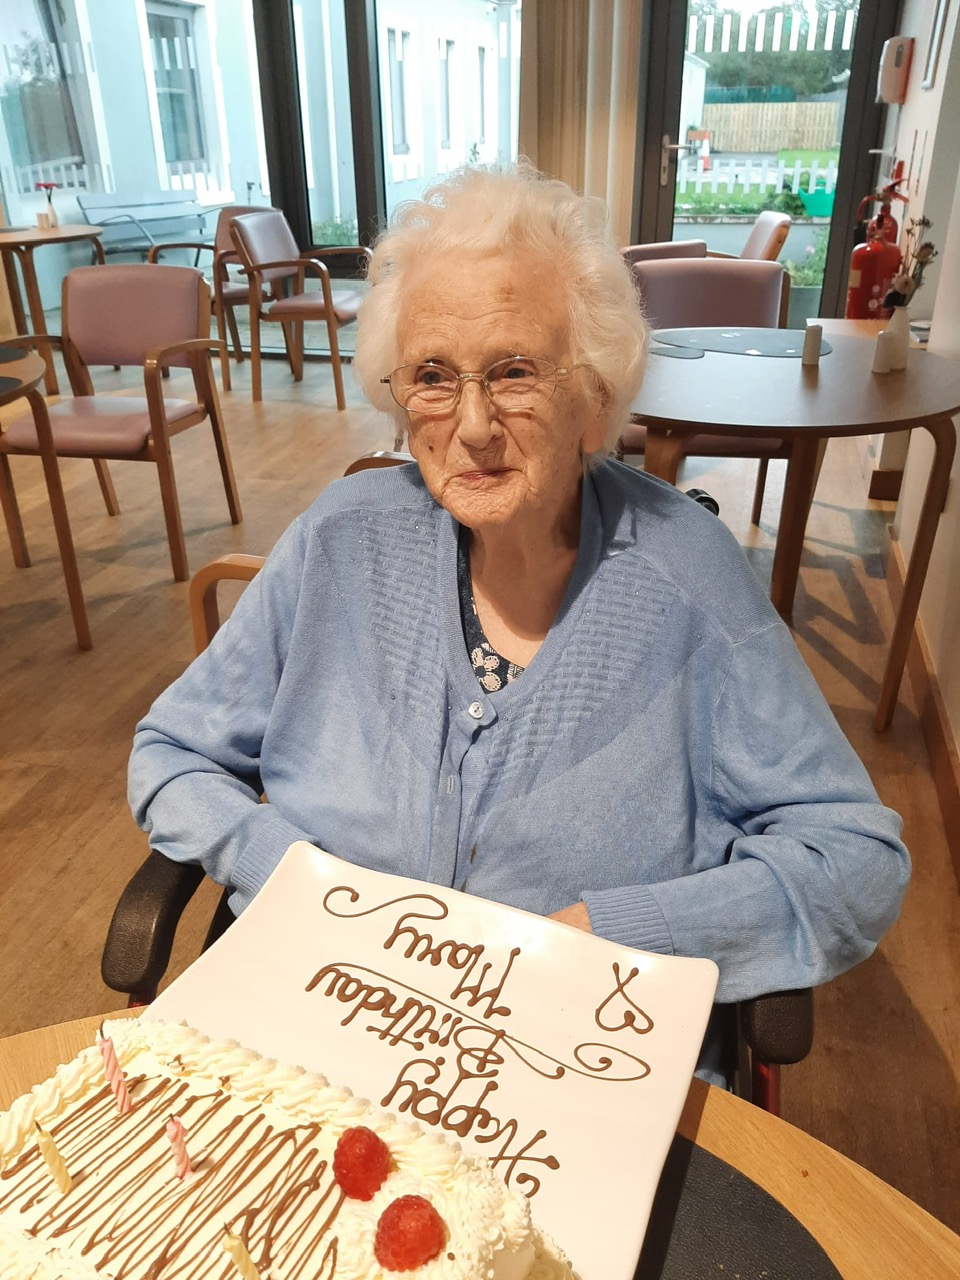 Happy
Birthday
Mary